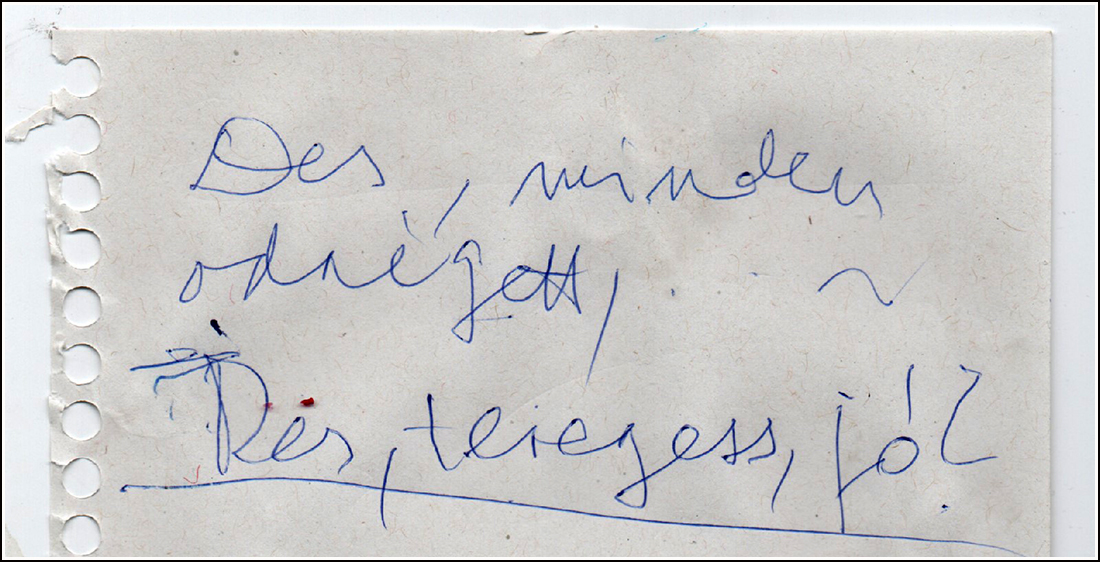 Des, minden
odaégett,
Kés, teregess, jó?